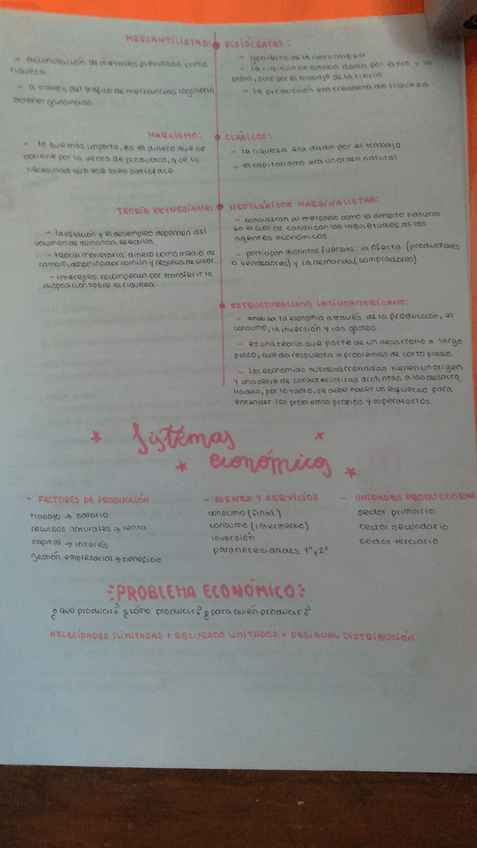 MERCANTILISTAS:
- acumulación de metales preciosos como
riqueza
- a través del tráfico de mercancías lograban
obtener ganancias.
FISIÓCRATAS:
- gobierno de la naturaleza
- la riqueza no estaba dada por el oro y la
plata, sino por el trabajo de la tierra.
- la producción era creadora de riqueza
MARXISMO:
- lo que más importa, es el dinero que se
obtiene por la venta de productos, que la
necesidad que ese bien satisface.
CLÁSICOS:
- la riqueza era dada por el trabajo
- el capitalismo era un orden natural
TEORÍA KEYNESIANA:
- la inflación y el desempleo dependen del
volumen de demanda efectiva
- teoría monetaria: dinero como medio de
cambio, denominador común y reserva de valor.
- interés es recompensa por transferir la
disposición sobre la riqueza.
NEOCLÁSICOS MARGINALISTAS:
- consideran al mercado como el ámbito natural
en el cual se canalizan las inquietudes de los
agentes económicos.
- participan distintas fuerzas: la oferta (productores
o vendedores) y la demanda (compradores)
ESTRUCTURALISMO LATINOAMERICANO:
- analiza la economía a través de la producción, el
consumo, la inversión y los gastos
- es una teoría que parte de un desarrollo a largo
plazo, que da respuesta a problemas de corto plazo.
- las economías subdesarrolladas tienen un origen
y una serie de características distintas a las desarro
lladas, por lo tanto, se debe hacer un esfuerzo para
entender los problemas propios y superarlos
Sistemas
económicos
- FACTORES DE PRODUCCIÓN
trabajo → salario
recursos naturales → renta
capital → interés
gestión empresarial → beneficio
- BIENES Y SERVICIOS
consumo (final)
consumo (intermedio)
inversión
para necesidades 1° y 2°
- UNIDADES PRODUCTORAS
sector primario
sector secundario
sector terciario
PROBLEMA ECONÓMICO:
¿que producir? ¿cómo producir? ¿para quién producir?
NECESIDADES ILIMITADAS + RECURSOS LIMITADOS = DESIGUAL DISTRIBUCIÓN